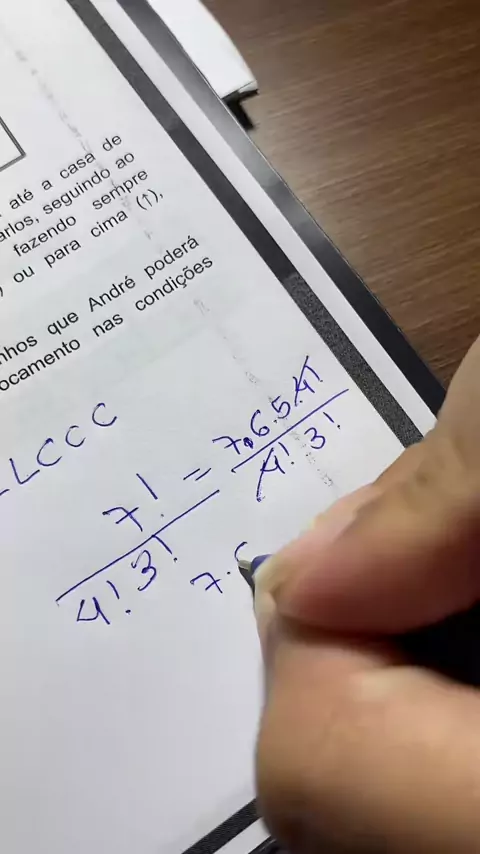 até a casa de
arlos, seguindo ao
fazendo sempre
) ou para cima (↑),
nhos que André poderá
ocamento nas condições
LCCC
7! / 4!3! = 7.6.5.4! / 4!3!
7.6